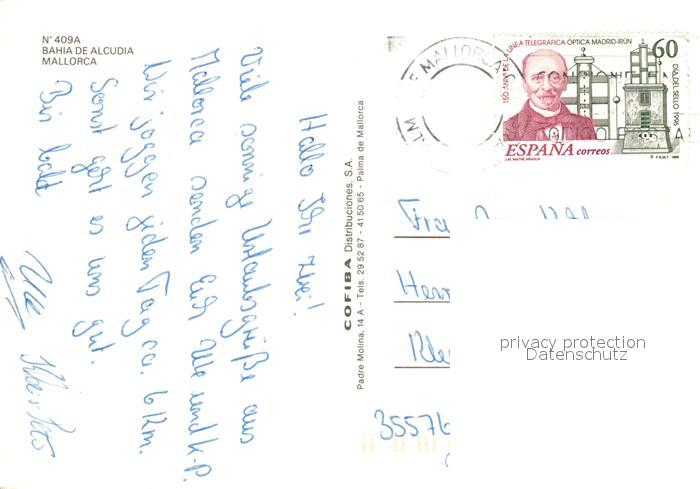 N° 409A
BAHIA DE ALCUDIA
MALLORCA
Hallo Ihr zwei!
Viele sonnige Urlaubsgrüße aus
Mallorca senden Euch Ute und K.-P.
Wir joggen jeden Tag ca. 6 km.
Sonst geht es uns gut.
Bis bald
Ute
COFIBA Distribuciones, S.A.
Padre Molina, 14 A - Tels. 29 52 87 - 41 50 65 - Palma de Mallorca
MALLORCA
150 ANIV. DE LA LINEA TELEGRÁFICA ÓPTICA MADRID-IRÚN
60
DIA DEL SELLO 1996
ESPAÑA correos
J.M. MATHÉ ARAGUA
F.N.M.T. 1996
35576
privacy protection
Datenschutz